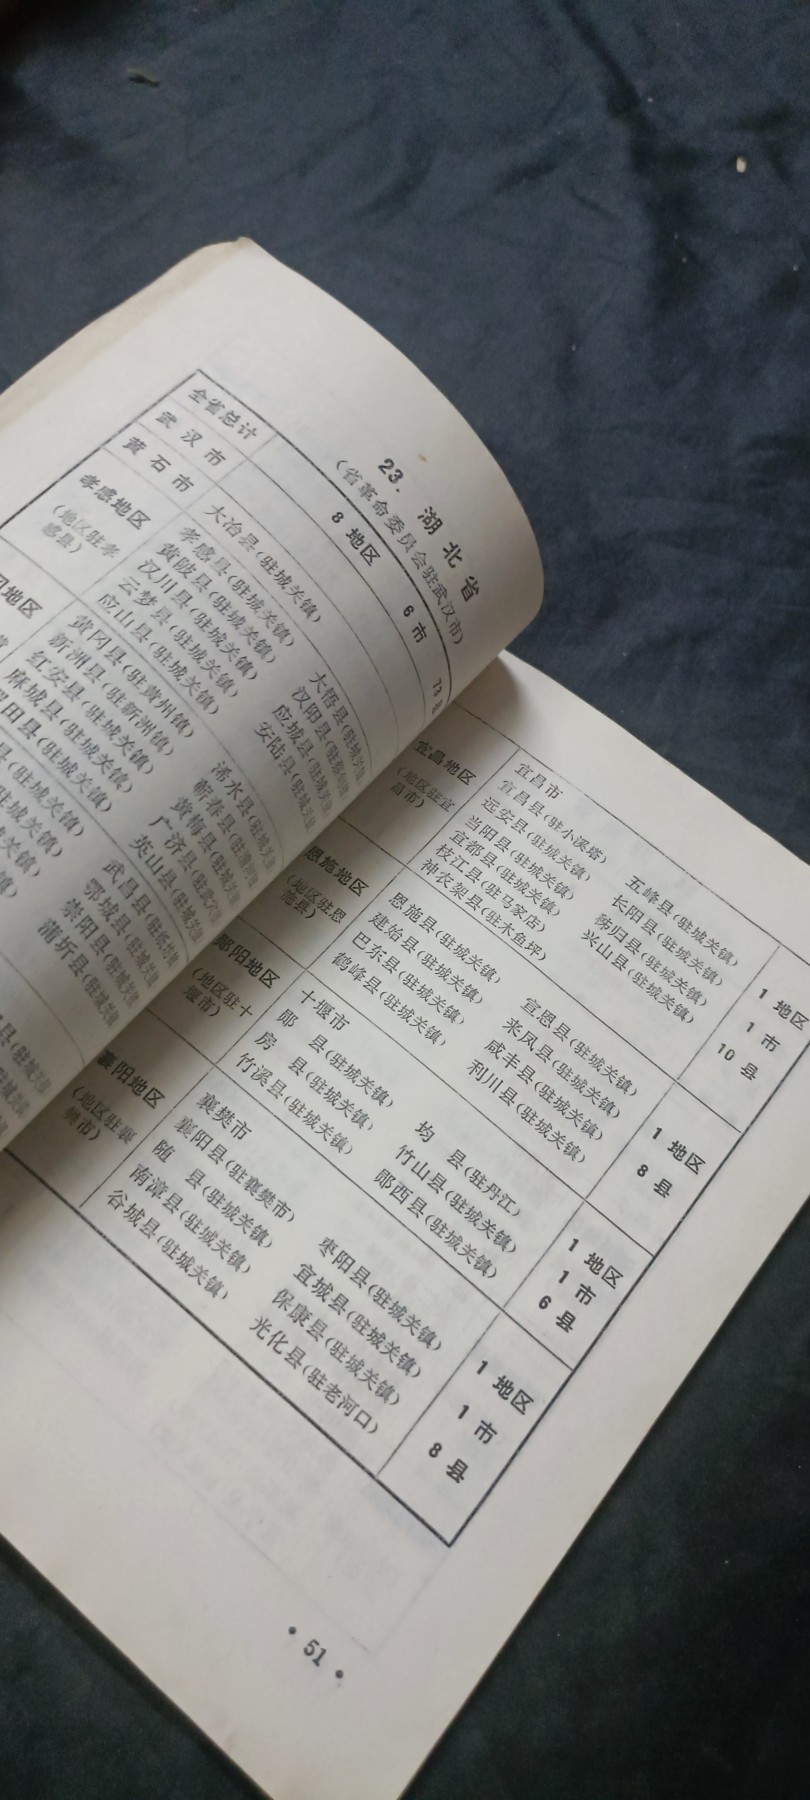 23. 湖北省
(省革命委员会驻武汉市)
全省总计
8 地区
6 市
73
武汉市
黄石市
大冶县(驻城关镇)
孝感地区
(地区驻孝
感县)
孝感县(驻城关镇)
黄陂县(驻城关镇)
汉川县(驻城关镇)
云梦县(驻城关镇)
应山县(驻城关镇)
大悟县(驻城关
汉阳县(驻蔡
应城县(驻城关
安陆县(驻城关
冈地区
黄冈县(驻黄州镇)
新洲县(驻新洲镇)
红安县(驻城关镇)
麻城县(驻城关镇)
田县(驻城关镇)
浠水县(驻城关
蕲春县(驻
黄梅县(驻城关
广济县(驻武穴
英山县(驻城关
县(驻城关镇)
驻城关镇)
城关镇)
关镇)
镇)
武昌县(驻纸坊
鄂城县(驻城关
崇阳县(驻城关
蒲圻县(驻城关
县(驻城关
宜昌地区
(地区驻宜
昌市)
宜昌市
宜昌县(驻小溪塔)
远安县(驻城关镇)
当阳县(驻城关镇)
宜都县(驻城关镇)
枝江县(驻马家店)
神农架县(驻木鱼坪)
五峰县(驻城关镇)
长阳县(驻城关镇)
秭归县(驻城关镇)
兴山县(驻城关镇)
1 地区
1 市
10 县
恩施地区
(地区驻恩
施县)
恩施县(驻城关镇)
建始县(驻城关镇)
巴东县(驻城关镇)
鹤峰县(驻城关镇)
宣恩县(驻城关镇)
来凤县(驻城关镇)
咸丰县(驻城关镇)
利川县(驻城关镇)
1 地区
8 县
郧阳地区
(地区驻十
堰市)
十堰市
郧 县(驻城关镇)
房 县(驻城关镇)
竹溪县(驻城关镇)
均 县(驻丹江)
竹山县(驻城关镇)
郧西县(驻城关镇)
1 地区
1 市
6 县
襄阳地区
(地区驻襄
樊市)
襄樊市
襄阳县(驻襄樊市)
随 县(驻城关镇)
南漳县(驻城关镇)
谷城县(驻城关镇)
枣阳县(驻城关镇)
宜城县(驻城关镇)
保康县(驻城关镇)
光化县(驻老河口)
1 地区
1 市
8 县
• 51 •